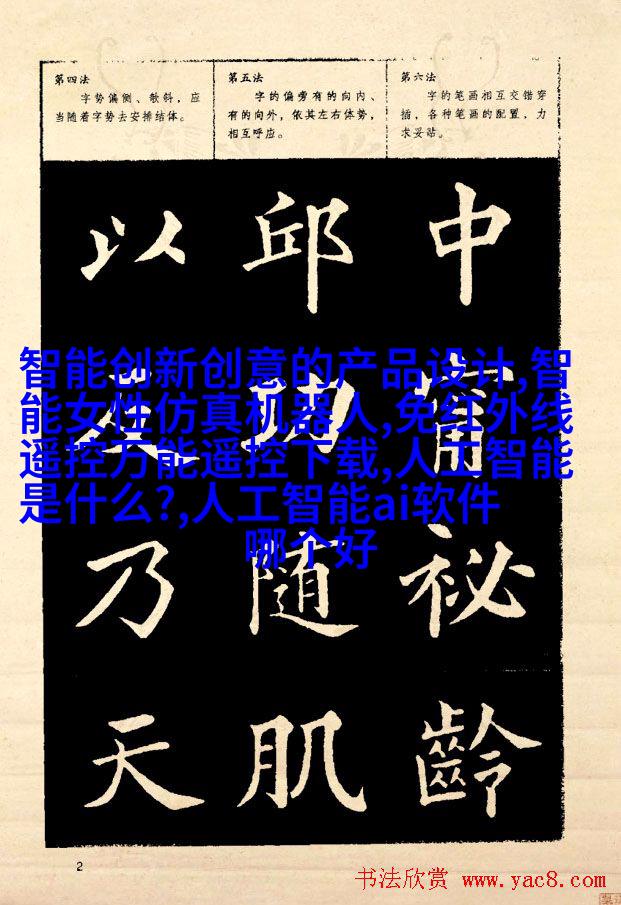 第四法
字势偏侧、欹斜，应
当随着字势去安排结体。
第五法
字的偏旁有的向内、
有的向外，依其左右体势，
相互呼应。
第六法
字的笔画相互交错穿
插，各种笔画的配置，力
求妥贴。
以 邱 中
智能创新创意的产品设计,智
能女性仿真机器人,免红外线
遥控万能遥控下载,人工智能
是什么?,人工智能ai软件
哪个好
功 甯
乃 随 祕
天 肌 齡
2
书法欣赏 www.yac8.com